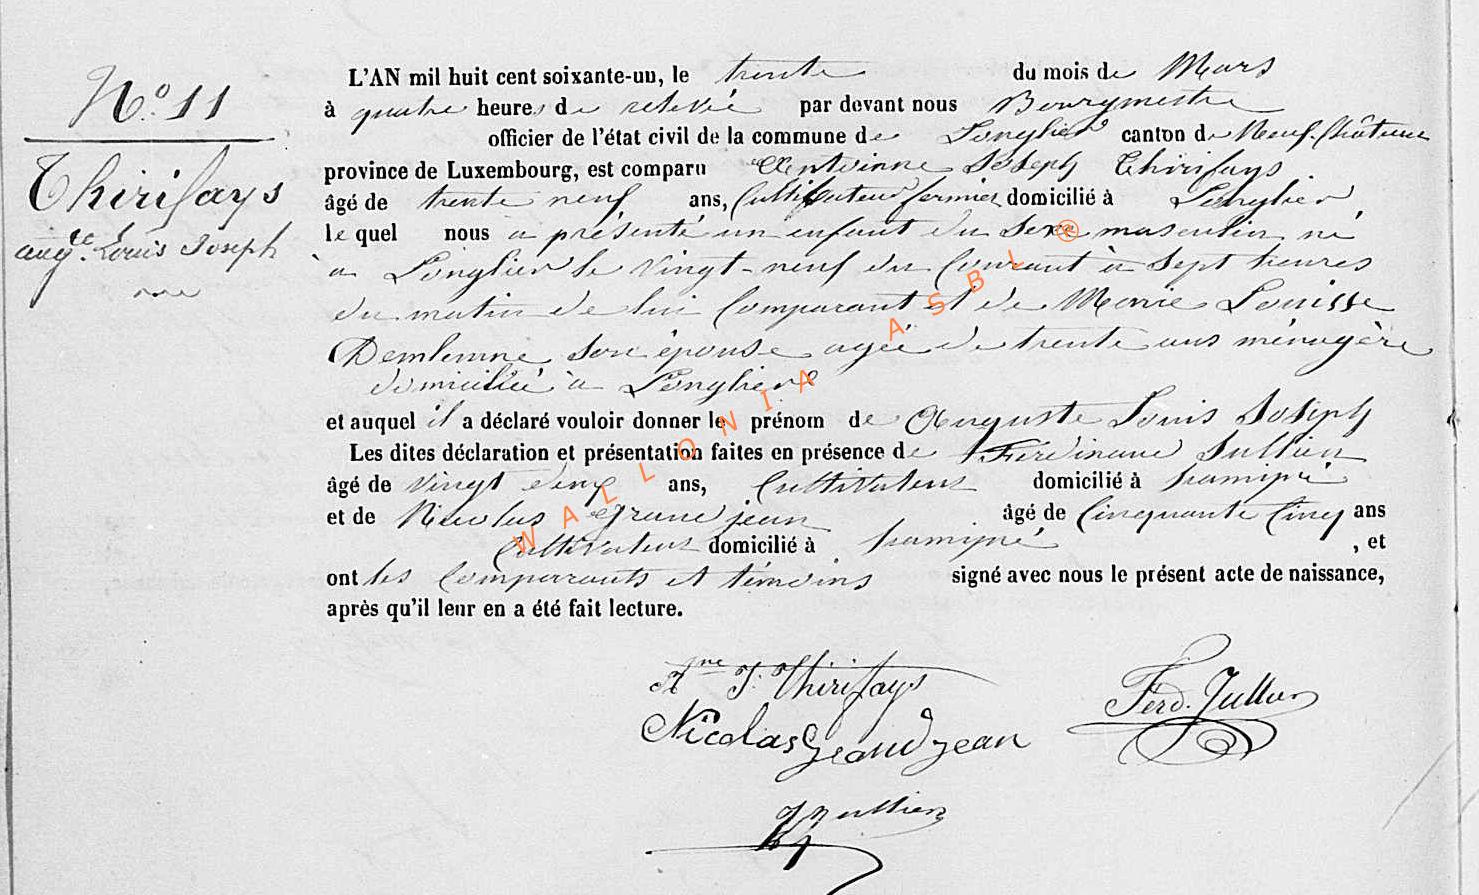 N.° 11
Thirifays
aug.te Louis Joseph
L'AN mil huit cent soixante-un, le trente du mois de Mars
à quatre heures de relevée par devant nous Bourgmestre
officier de l'état civil de la commune de Longlier canton de Neufchâteau
province de Luxembourg, est comparu Antoinne Joseph Thirifays
âgé de trente neuf ans, Cultivateur fermier domicilié à Longlier,
lequel nous a présenté un enfant du Sexe masculin né
à Longlier le vingt-neuf du Courant à Sept heures
du matin de lui Comparant et de Marie Louisse
son épouse agée de trente ans ménagère
domiciliée à Longlier
et auquel il a déclaré vouloir donner le prénom de Auguste Louis Joseph
Les dites déclaration et présentation faites en présence de Ferdinand Jullien
âgé de vingt cinq ans, Cultivateur domicilié à
et de Nicolas Grandjean âgé de Cinquante Cinq ans
Cultivateur domicilié à , et
ont les Comparants et témoins signé avec nous le présent acte de naissance,
après qu'il leur en a été fait lecture.
Ane J. Thirifays
Ferd. Jullien
Nicolas Grandjean
Jullien
WALLONIA ASBL ®